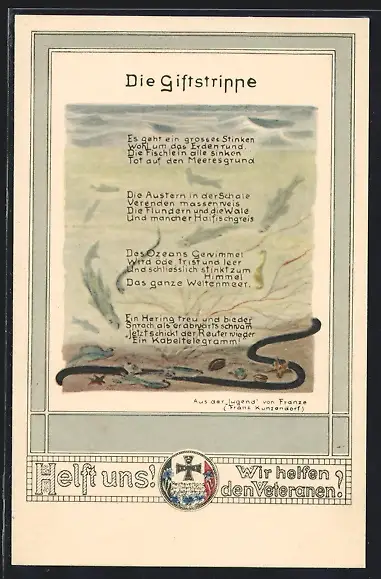 Die Giftstrippe
Es geht ein grosses Stinken
Wohl um das Erdenrund
Die Fischlein alle sinken
Tot auf den Meeresgrund
Die Austern in der Schale
Verenden massenweis
Die Flundern und die Wale
Und mancher Haifischgreis
Des Ozeans Gewimmel
Wird öde trist und leer
Und schliesslich stinkt zum
Himmel
Das ganze Weltenmeer.
Ein Hering treu und bieder
Sprach, als er abwärts schwam
„Jetzt schickt der Reuter wieder
Ein Kabeltelegramm!"
Aus der „Jugend" von Franze
(Franz Kunzendorf)
Helft uns! Wir helfen
den Veteranen!